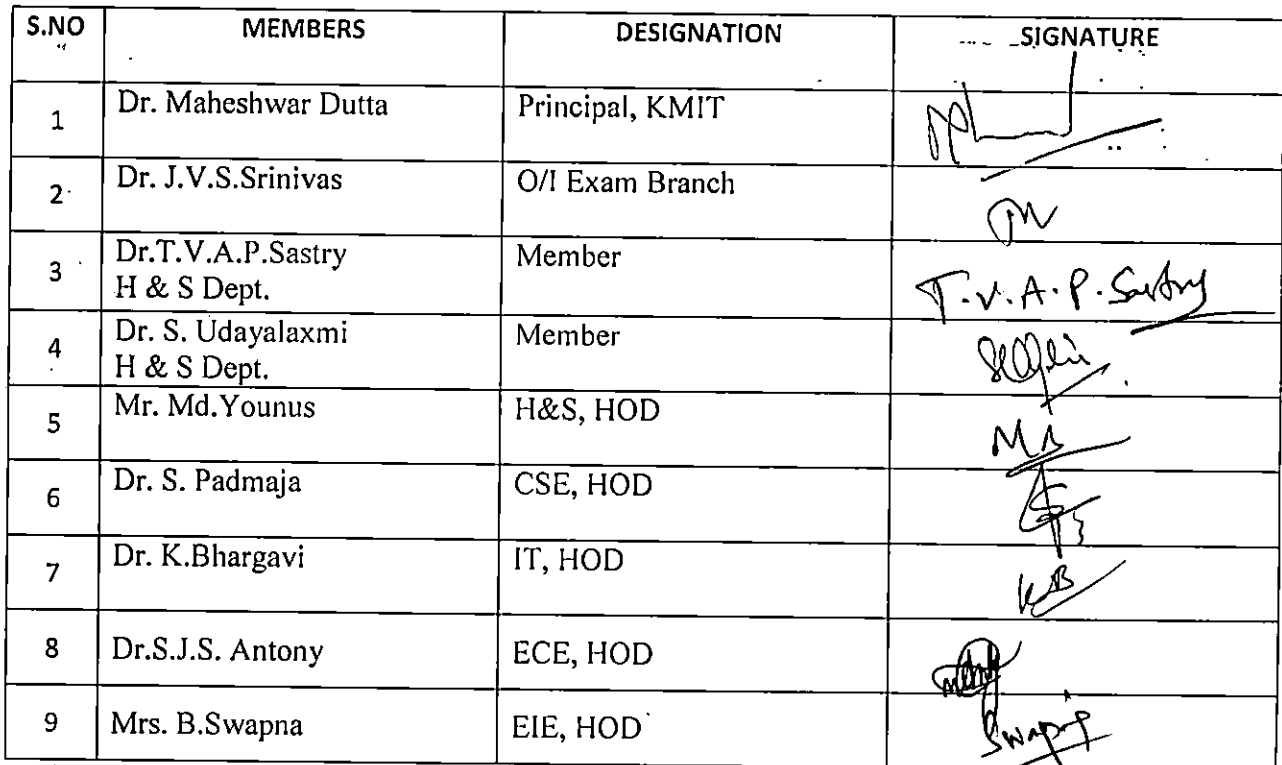 S.NO MEMBERS DESIGNATION SIGNATURE
1 Dr. Maheshwar Dutta Principal, KMIT
2 Dr. J.V.S.Srinivas O/I Exam Branch
3 Dr.T.V.A.P.Sastry Member T.V.A.P.Sastry
H & S Dept.
4 Dr. S. Udayalaxmi Member
H & S Dept.
5 Mr. Md.Younus H&S, HOD
6 Dr. S. Padmaja CSE, HOD
7 Dr. K.Bhargavi IT, HOD KB
8 Dr.S.J.S. Antony ECE, HOD
9 Mrs. B.Swapna EIE, HOD Swapna